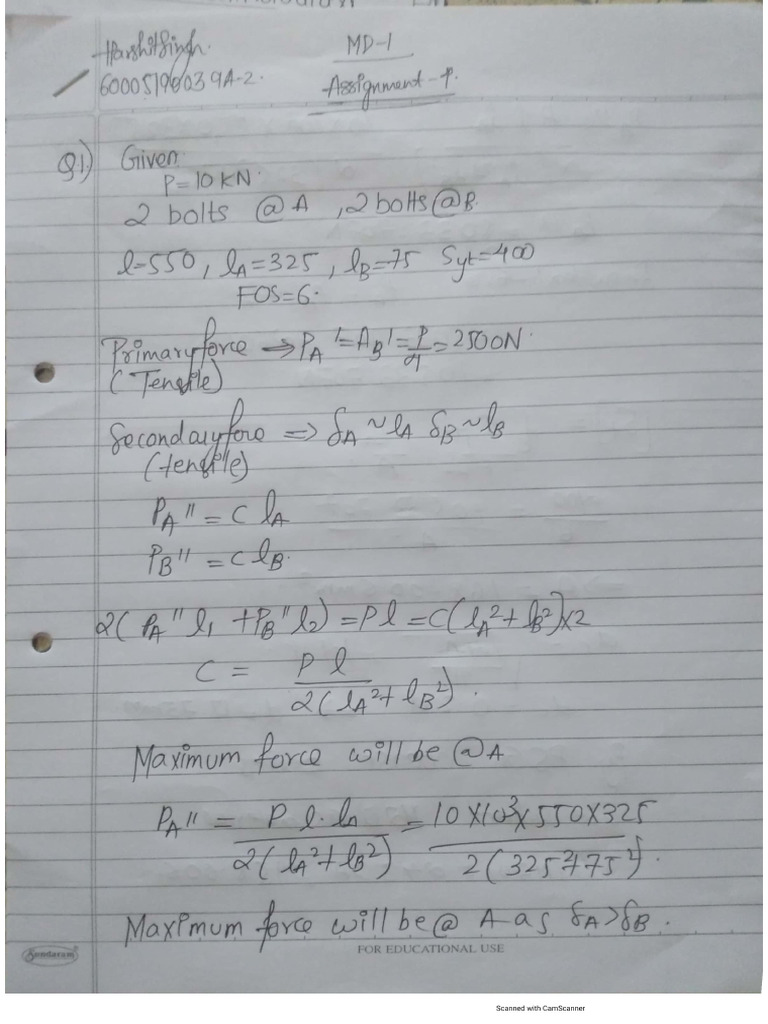 Harshit Singh.
MD-1
60005190039 A-2.
Assignment-1.
Q1) Given
P=10 KN.
2 bolts @ A , 2 bolts @ B.
l=550, lA=325, lB=75 Syt=400
FOS=6.
Primary force → PA'=AB'=P/4=2500N.
(Tensile)
Secondary force ⇒ δA ~ lA δB ~ lB
(tensile)
PA" = C lA
PB" = C lB.
2( PA" l1 + PB" l2) = Pl = C(lA²+ lB²)×2
C = P l / 2(lA²+ lB²).
Maximum force will be @ A
PA" = P l. lA / 2(lA²+ lB²) = 10×10³×550×325 / 2(325²+75²).
Maximum force will be @ A as δA>δB.
Sundaram
FOR EDUCATIONAL USE
Scanned with CamScanner